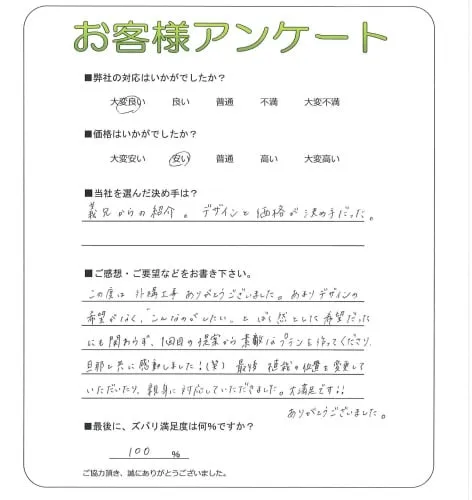 お客様アンケート
■弊社の対応はいかがでしたか？
大変良い 良い 普通 不満 大変不満
■価格はいかがでしたか？
大変安い 安い 普通 高い 大変高い
■当社を選んだ決め手は？
義兄からの紹介。デザインと価格が決め手だった。
■ご感想・ご要望などをお書き下さい。
この度は外構工事ありがとうございました。あまりデザインの
希望がなく、"こんなのがしたい"とばく然とした希望だった
にも関わらず、1回目の提案から素敵なプランを作ってくださり、
旦那と共に感動しました！(笑) 最終 植栽の位置を変更して
いただいたり、親身に対応していただきました。大満足です!!
ありがとうございました。
■最後に、ズバリ満足度は何％ですか？
100 ％
ご協力頂き、誠にありがとうございました。